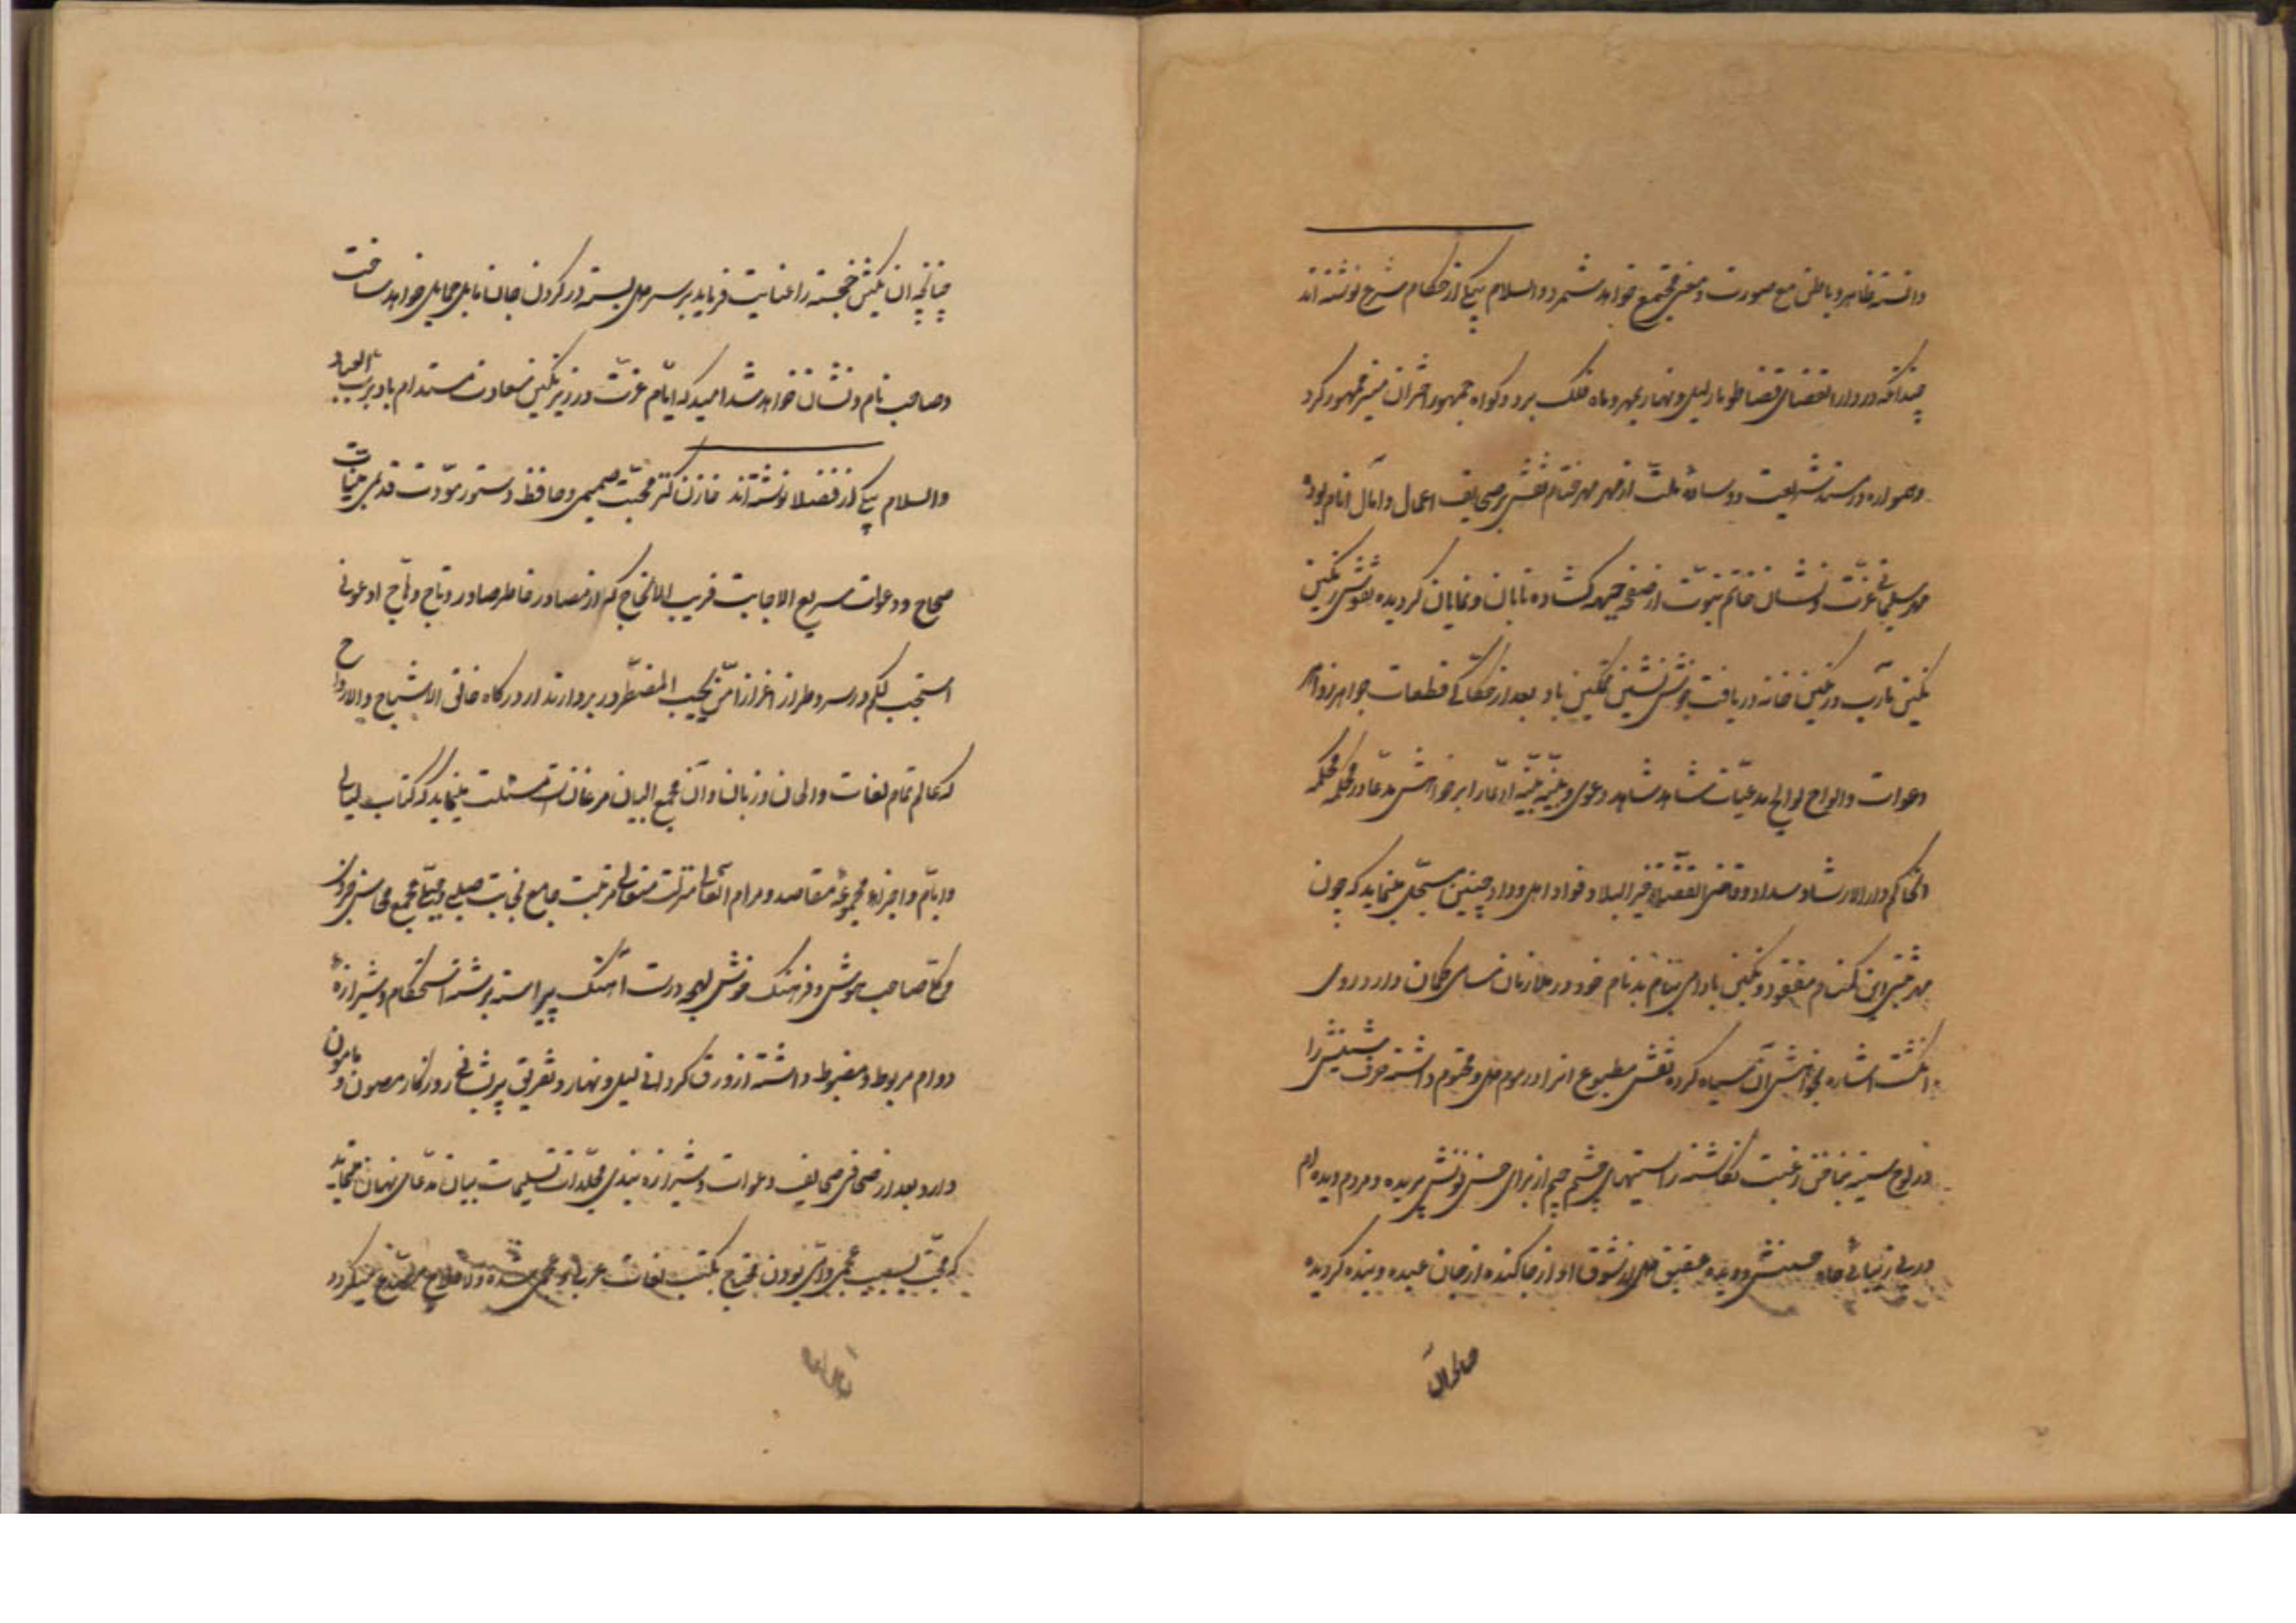 دانسته ظاهر و باطن مع صورت و معنی مجتمع خواهد شمرد والسلام بیکی از حکام شرع نوشته‌اند
چندانکه در دار القضای قضا طومار لیل و نهار بمهر و ماه فلک برد و کواه جمهور اختران میسر ممهور کرد
و همواره در مسند شریعت و وساده ملت از مهر مهر ختام نقش بر صحایف اعمال و آمال انام بوده
مهر سلیمانی عزت و نشان خاتم نبوت از صفحه جبهه کشاده تابان و نمایان کردیده نقوش نکین
نکین مآرب در نکین خانه دریافت خوش نشین تمکین باد بعد از حکاکی قطعات جواهر زواهر
دعوات و الواح لوایح مدعیات شاهد شاهد دعوی و بینه بینه ادعا را بر خواهش مدعا در محکمه محکمه
الحاکم دار الارشاد و سداد و قاضی القضاة خیر البلاد فواد اهل وداد چنین مسجل مینماید که چون
مهر جبین این کمنام مفقود و نکین بادامی بنام بدنام خود در ملازمان سامی کمان دارد روی
انکشت اشاره بخواهش آن سیاه کرده نقش مطبوع انرا در موم دل مختوم داشته حرف شینش را
در لوح سینه بناخن رغبت نکاشته راستیهای چشم جیم از برای حسن نونش پریده و مردم دیده‌ام
در پی زیبائی جاه حسنش دویده عقیق دل از شوق او از جا کنده از جان عبده و بنده کردیده
چنانچه ان نکین خجسته را عنایت فرماید بر سر دل بسته در کردن جان مایل حمایل خواهد ساخت
و صاحب نام و نشان خواهد شد امید که ایام عزت در زیر نکین سعادت مستدام باد برب العباد
والسلام بیکی از فضلا نوشته‌اند خازن کنز محبت صمیمی و حافظ دستور مودت قدیمی تحیات
صحاح و دعوات سریع الاجابت قریب الانجاح که از مصادر خاطر صادر و تاج وهاج ادعونی
استجب لکم در سر و طراز اعزاز امن یجیب المضطر در بر دارند از درکاه خالق الاشباح والارواح
که عالم تمام لغات و الحان و زبان دان مجمع البیان مرغانست مسئلت مینماید که کتاب لیالی
و ایام و اجزاء مجموعه مقاصد و مرام انعالی منزلت متعالی مرتبت جامع نجابت اصلی و مجمع محاسن فروزان
ذکا صاحب هوش و فرهنک خوش لهجه درست آهنک پیراسته برشته استحکام و شیرازه
دوام مربوط و مضبوط داشته از ورق کردانی لیل و نهار و تفریق پریشانی روزکار مصون و مامون
دارد بعد از صحافی صحایف دعوات و شیرازه بندی مجلدات تسلیمات بیان مدعای نهان مینماید
که محب بسبب عجمی و امی بودن محتاج بکتب لغات عربی و عجمی شده